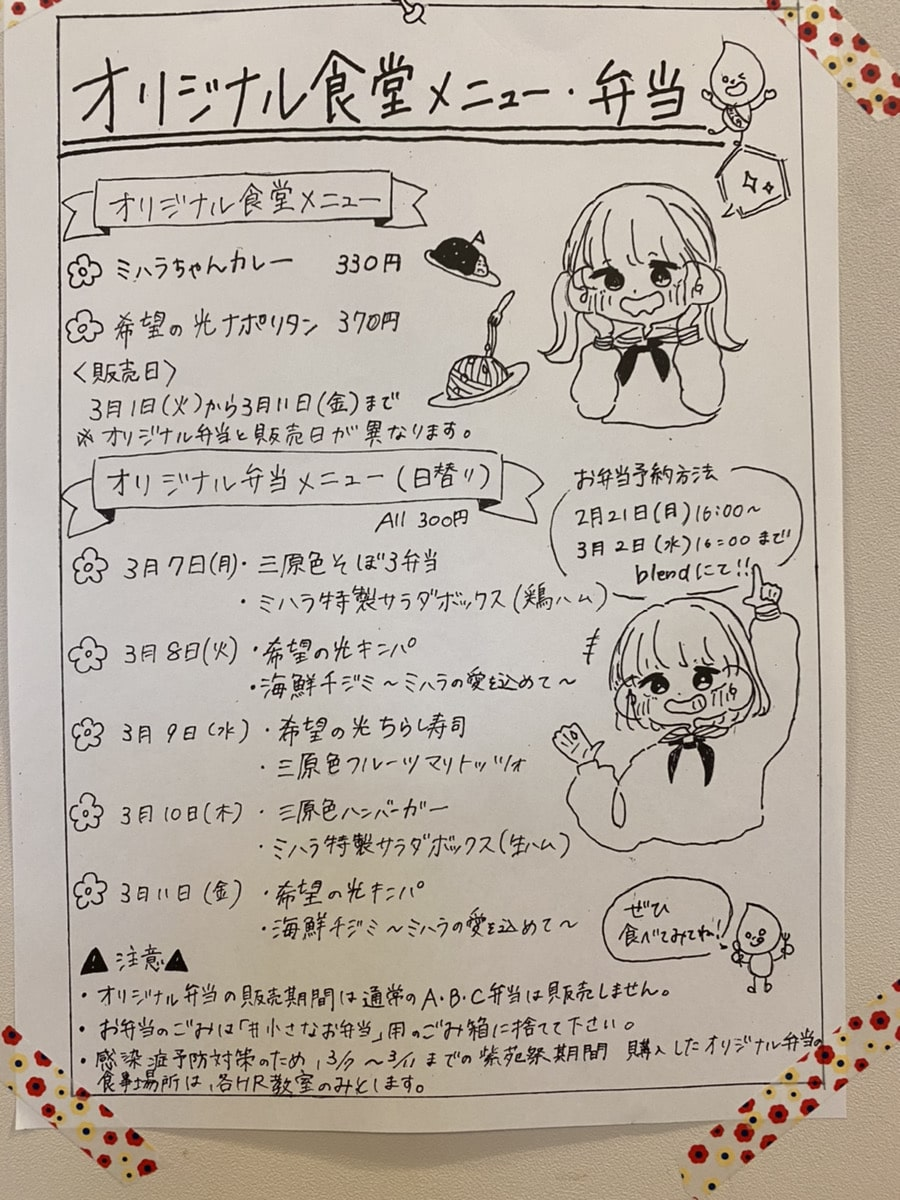 オリジナル食堂メニュー・弁当
オリジナル食堂メニュー
ミハラちゃんカレー 330円
希望の光ナポリタン 370円
〈販売日〉
3月1日(火)から3月11日(金)まで
※オリジナル弁当と販売日が異なります。
オリジナル弁当メニュー(日替り)
All 300円
お弁当予約方法
2月21日(月)16:00~
3月2日(水)16:00まで
blendにて!!
3月7日(月)・三原色そぼろ弁当
・ミハラ特製サラダボックス(鶏ハム)
3月8日(火)・希望の光キンパ
・海鮮チヂミ~ミハラの愛を込めて~
3月9日(水)・希望の光ちらし寿司
・三原色フルーツマリトッツォ
3月10日(木)・三原色ハンバーガー
・ミハラ特製サラダボックス(生ハム)
3月11日(金)・希望の光キンパ
・海鮮チヂミ~ミハラの愛を込めて~
ぜひ
食べてみてね!!
▲注意▲
・オリジナル弁当の販売期間は通常のA・B・C弁当は販売しません。
・お弁当のごみは「#小さなお弁当」用のごみ箱に捨てて下さい。
・感染症予防対策のため、3/7~3/11までの紫苑祭期間 購入したオリジナル弁当の
食事場所は、各HR教室のみとします。